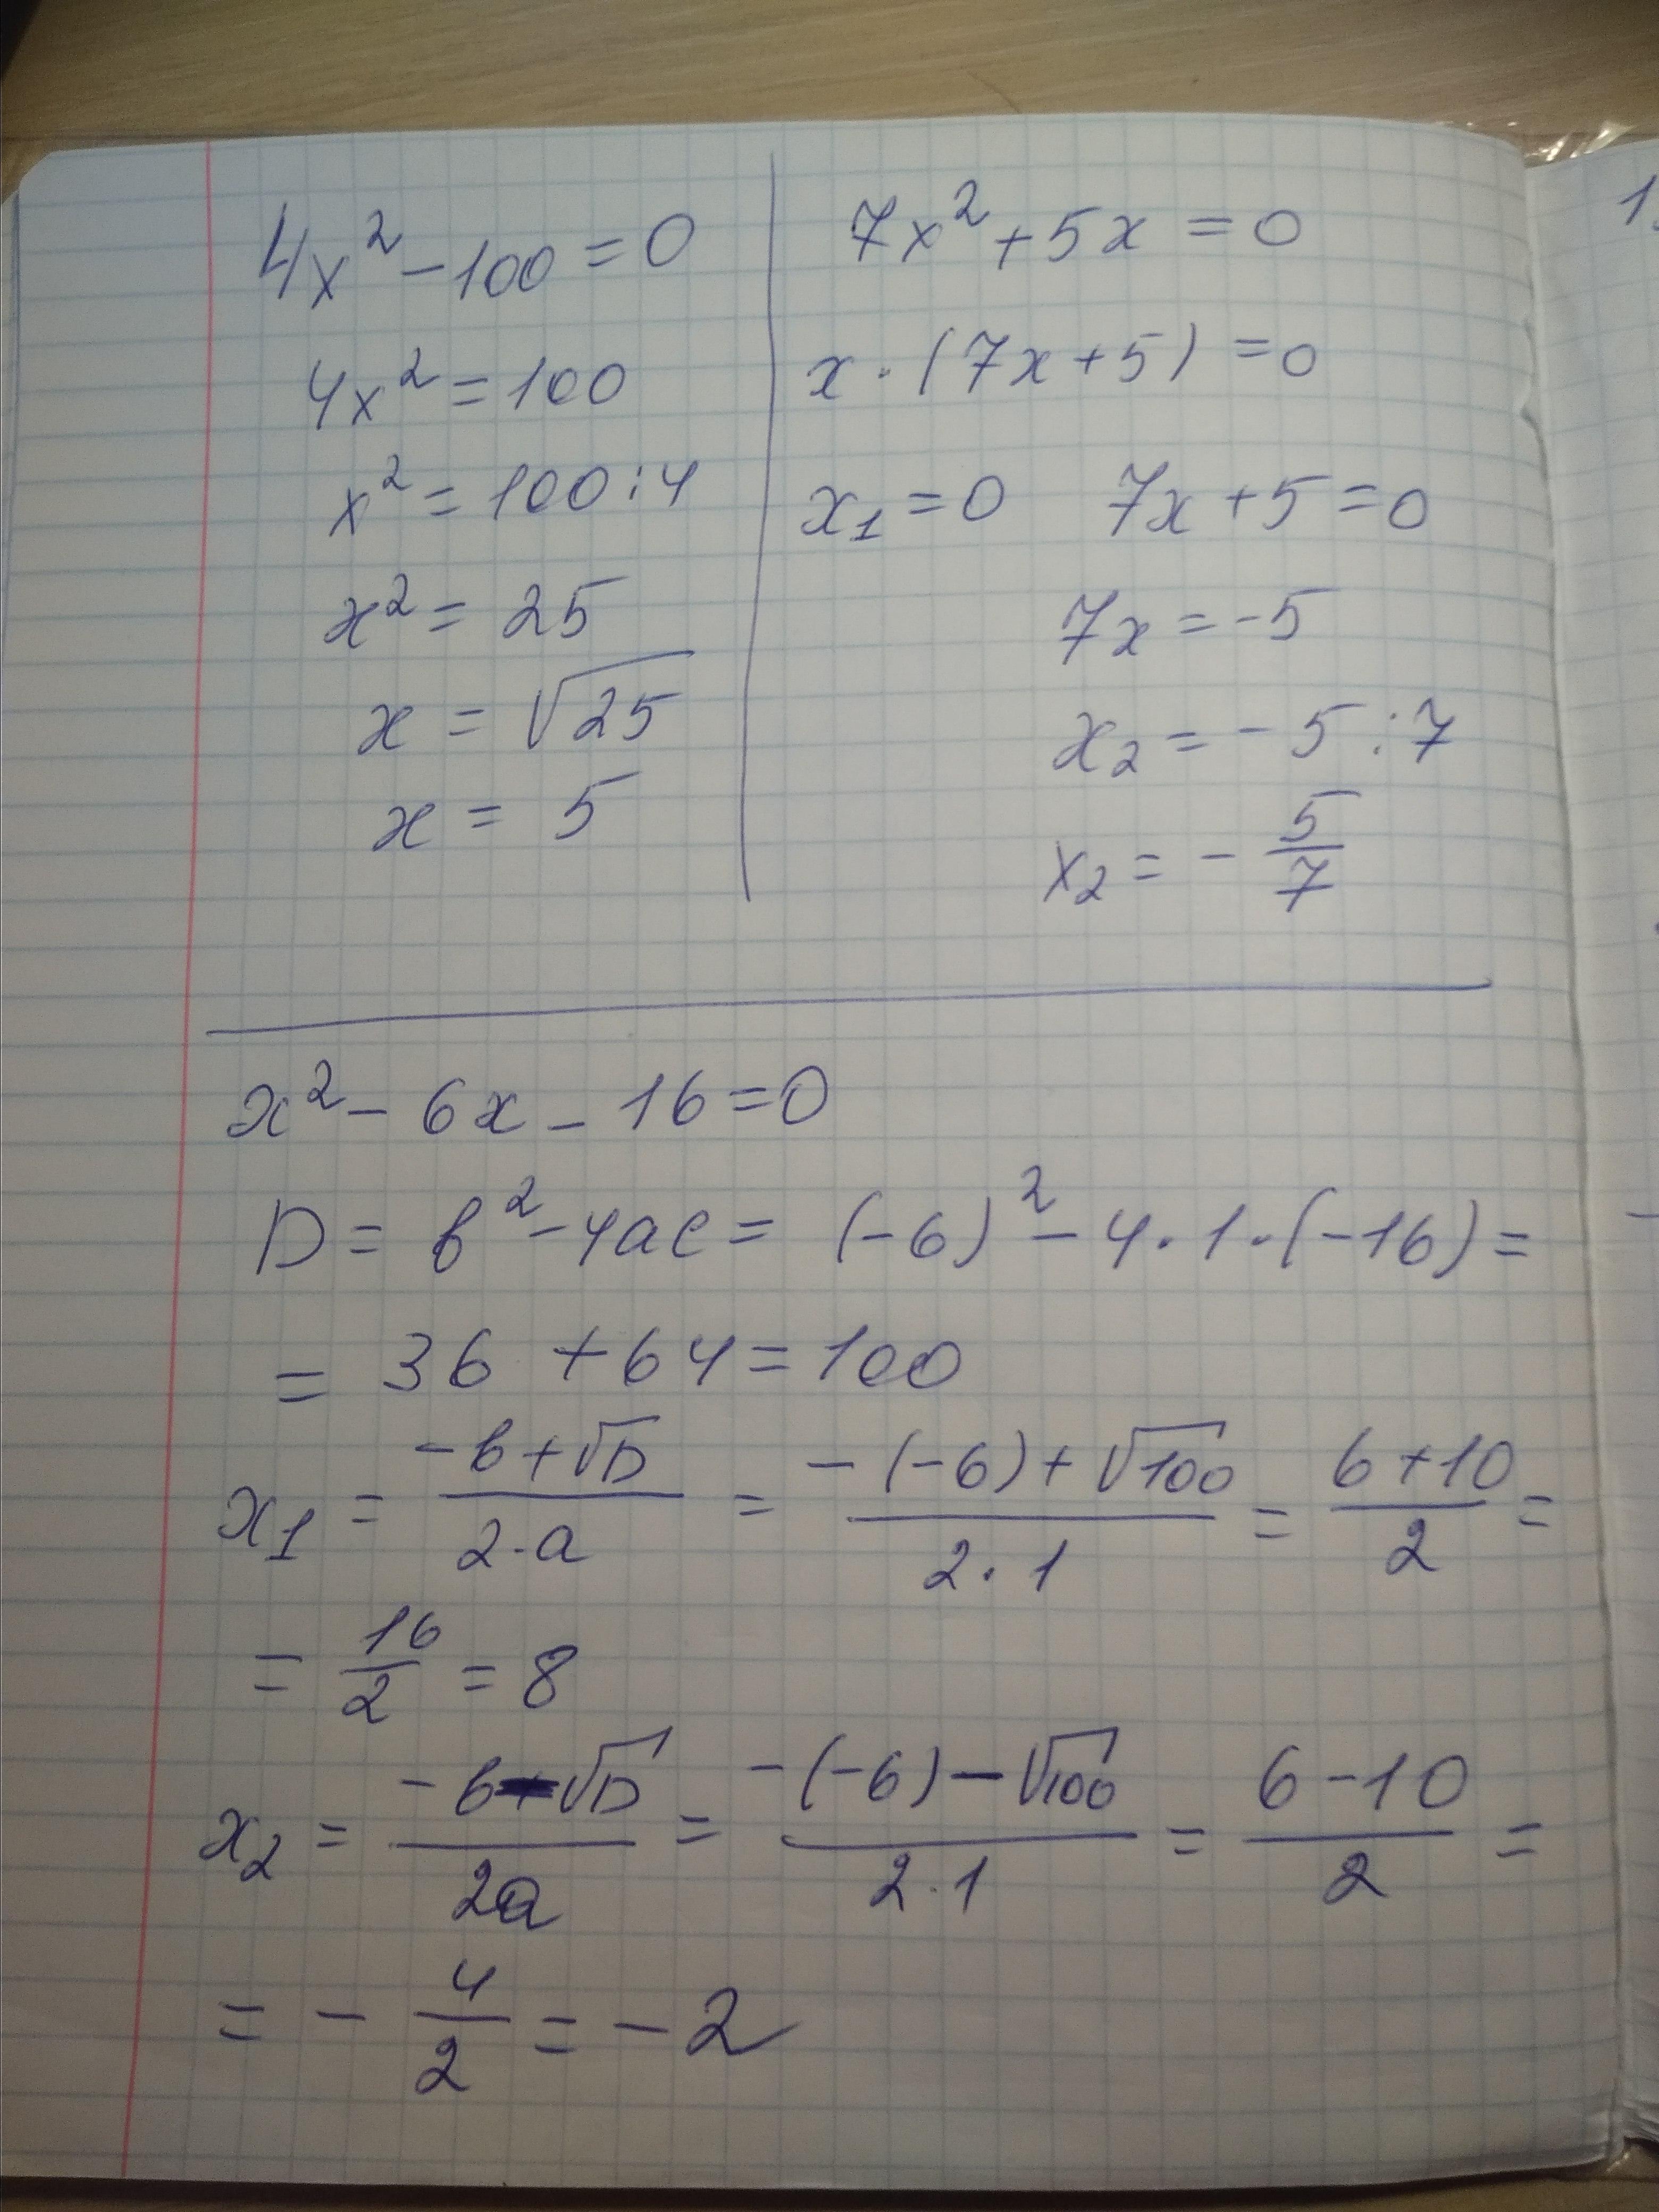 4x² - 100 = 0
4x² = 100
x² = 100 : 4
x² = 25
x = √25
x = 5
7x² + 5x = 0
x · (7x + 5) = 0
x₁ = 0 7x + 5 = 0
7x = -5
x₂ = -5 : 7
x₂ = - 5/7
x² - 6x - 16 = 0
D = b² - 4ac = (-6)² - 4 · 1 · (-16) =
= 36 + 64 = 100
x₁ = (-b + √D)/(2 · a) = (-(-6) + √100)/(2 · 1) = (6 + 10)/2 =
= 16/2 = 8
x₂ = (-b - √D)/(2a) = (-(-6) - √100)/(2 · 1) = (6 - 10)/2 =
= - 4/2 = -2